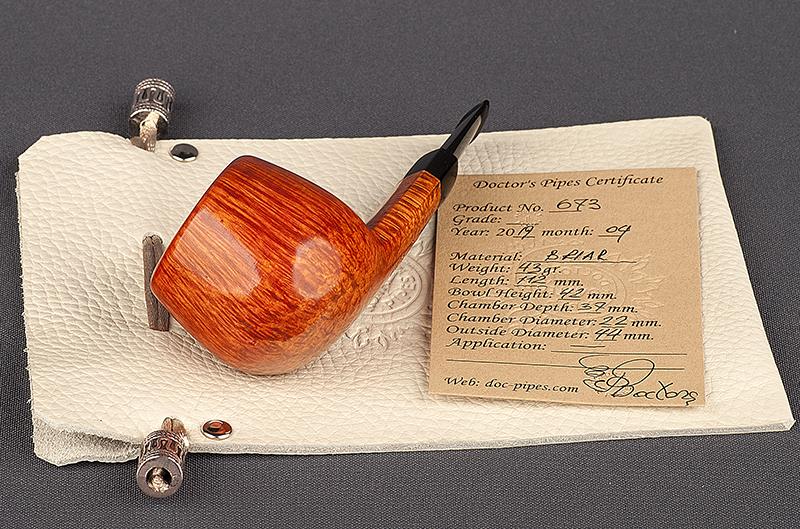 Doctor's Pipes Certificate
Product No. 673
Grade:
Year: 2019 month: 09
Material: BRIAR
Weight: 43 gr.
Length: 142 mm.
Bowl Height: 42 mm.
Chamber Depth: 37 mm.
Chamber Diameter: 22 mm.
Outside Diameter: 44 mm.
Application:
Doctors
Web: doc-pipes.com